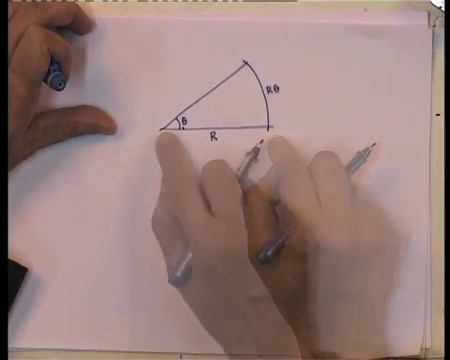 Rθ
θ
R